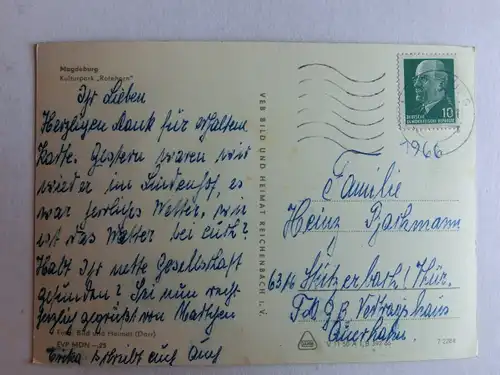 Magdeburg
Kulturpark „Rotehorn“
Ihr Lieben
Herzlichen Dank für erhaltene
Karte. Gestern waren wir
wieder im Lindenhof, es
war herrliches Wetter, wie
ist das Wetter bei euch?
Habt Ihr nette Gesellschaft
gefunden? Seid nun recht
herzlich gegrüßt von
Foto: Bild und Heimat (Darr)
EVP MDN -,25
Erika schreibt euch auch
VEB BILD UND HEIMAT REICHENBACH i. V.
10
DEUTSCHE
DEMOKRATISCHE REPUBLIK
1966
Familie
Heinz
6316 Stützerbach / Thür.
FDGB Vertragshaus
Auerhahn.